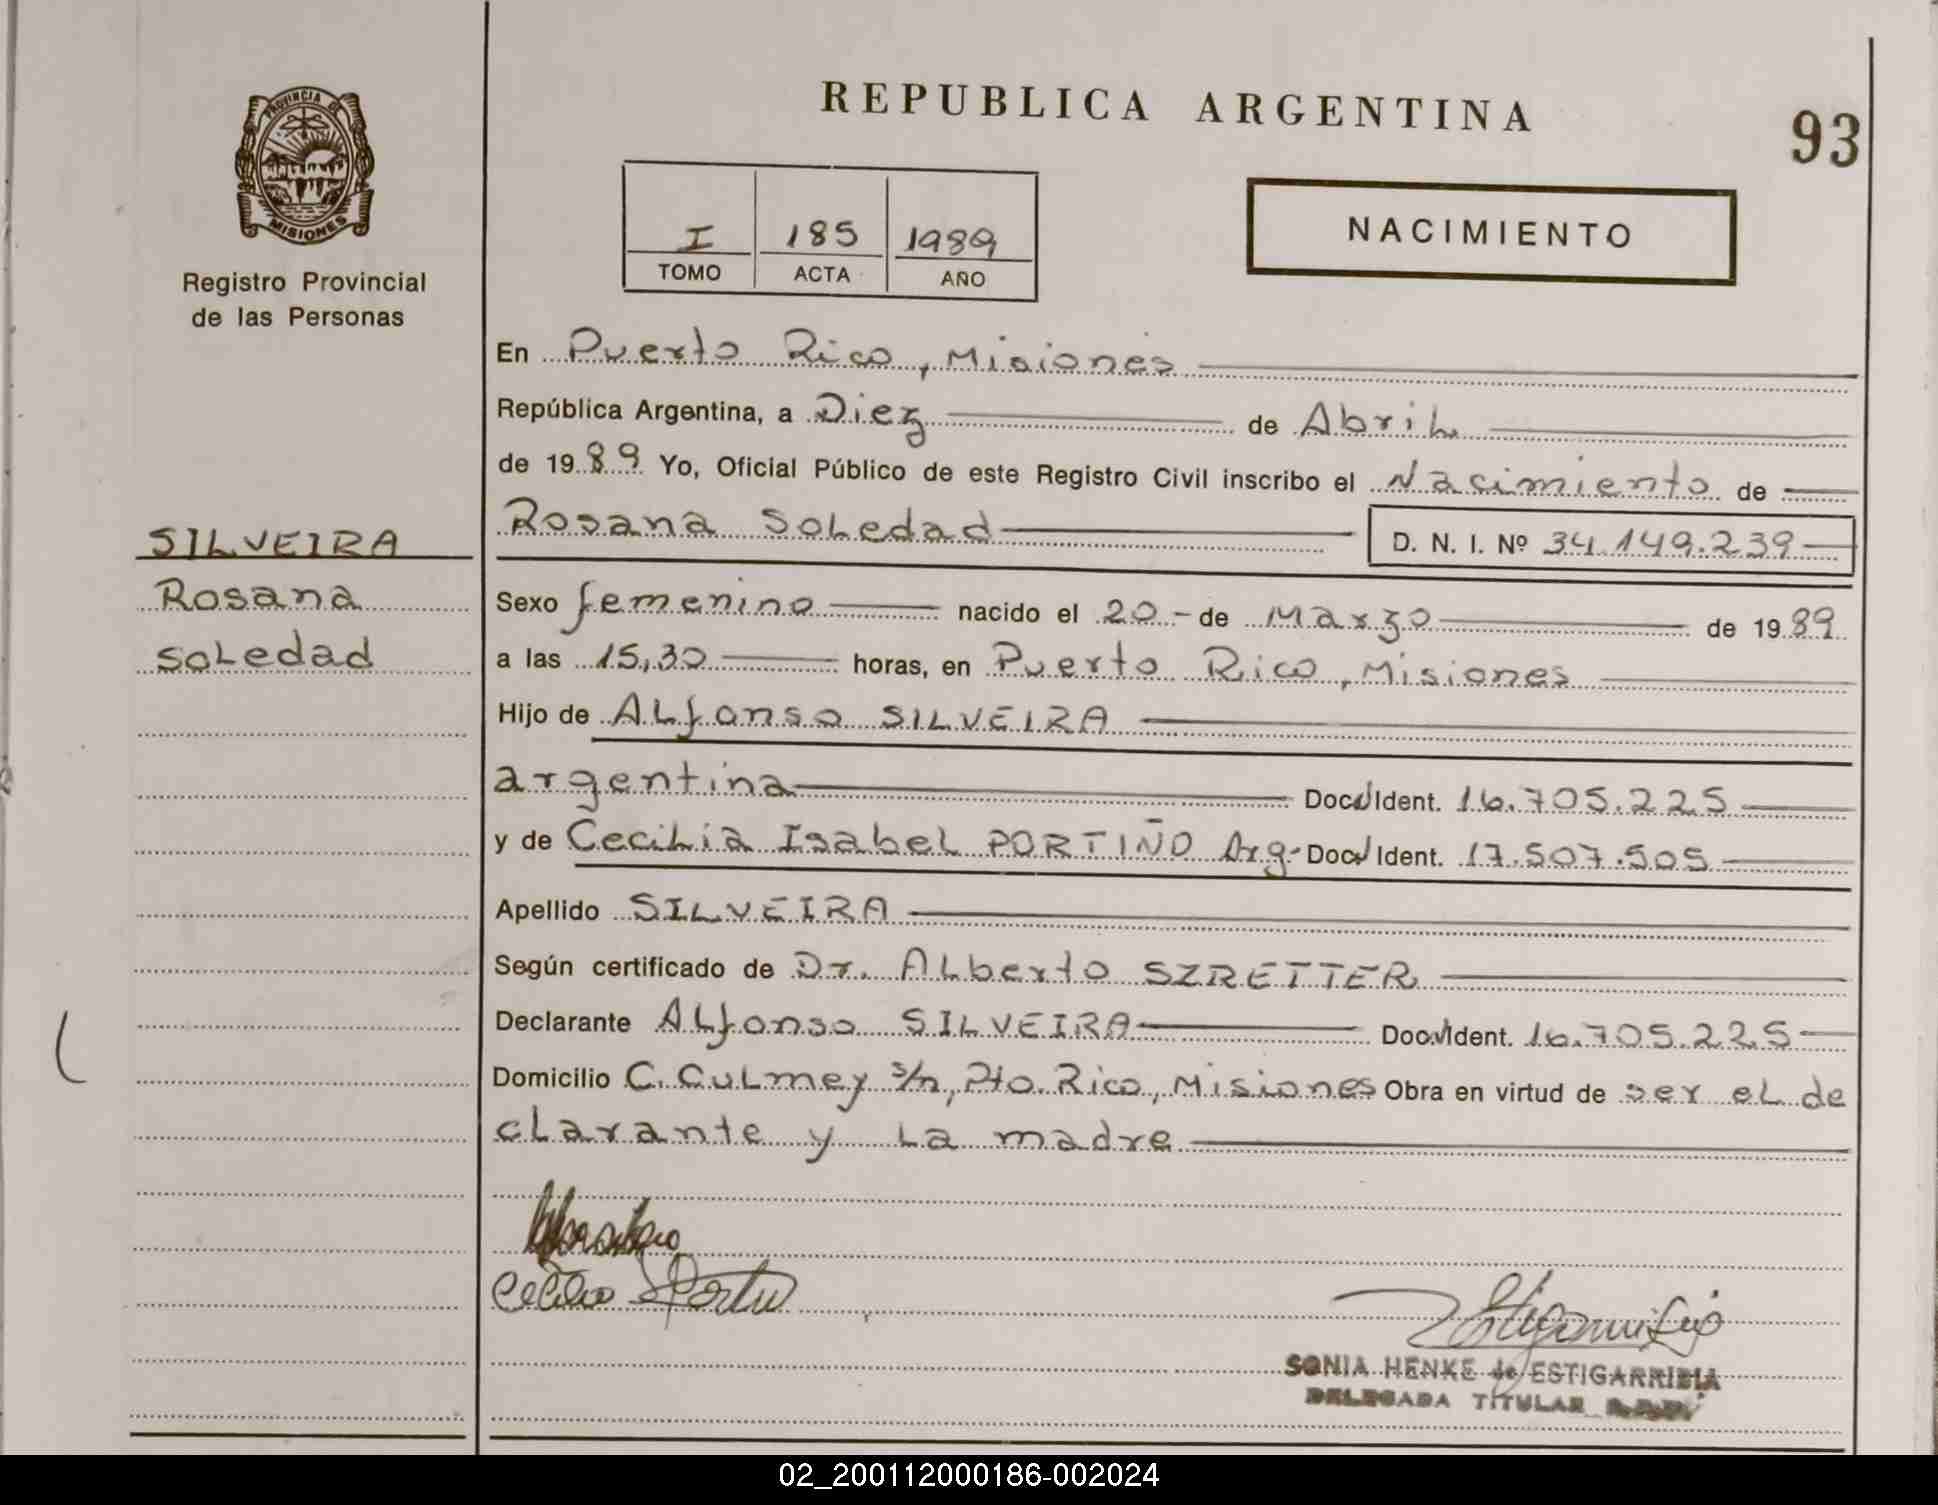 PROVINCIA DE
MISIONES
Registro Provincial
de las Personas
SILVEIRA
Rosana
Soledad
REPUBLICA ARGENTINA
93
I 185 1989
TOMO ACTA AÑO
NACIMIENTO
En Puerto Rico, Misiones
República Argentina, a Diez de Abril
de 1989 Yo, Oficial Público de este Registro Civil inscribo el Nacimiento de
Rosana Soledad D. N. I. Nº 34.149.239
Sexo femenino nacido el 20 - de Marzo de 1989
a las 15,30 horas, en Puerto Rico, Misiones
Hijo de Alfonso SILVEIRA
argentina Doc. Ident. 16.705.225
y de Cecilia Isabel PORTIÑO Arg. Doc. Ident. 17.507.505
Apellido SILVEIRA
Según certificado de Dr. Alberto SZRETTER
Declarante Alfonso SILVEIRA Doc. Ident. 16.705.225
Domicilio C. Culmey s/n, Pto. Rico, Misiones Obra en virtud de ser el de
clarante y la madre
SONIA HENKE de ESTIGARRIBIA
DELEGADA TITULAR
02_200112000186-002024